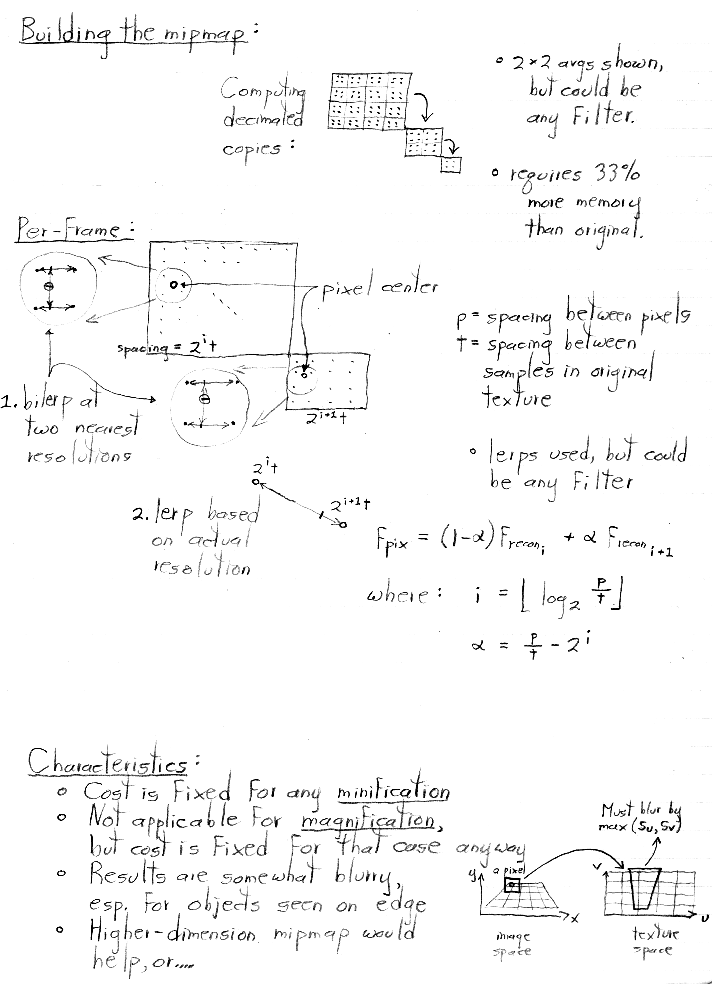 Building the mipmap:
Computing
decimated
copies:
• 2×2 avgs shown,
but could be
any Filter.
• requires 33%
more memory
than original.
Per-Frame:
pixel center
spacing = 2^i t
2^{i+1} t
1. bilerp at
two nearest
resolutions
p = spacing between pixels
t = spacing between
samples in original
texture
• lerps used, but could
be any Filter
2^i t
2^{i+1} t
2. lerp based
on actual
resolution
F_pix = (1-α) F_recon_i + α F_recon_{i+1}
where: i = ⌊ log_2 p/t ⌋
α = p/t - 2^i
Characteristics:
• Cost is Fixed For any minification
• Not applicable For magnification,
but cost is Fixed For that case anyway
• Results are somewhat blurry,
esp. For objects seen on edge
• Higher-dimension mipmap would
help, or....
Must blur by
max (Su, Sv)
a pixel
y
x
image
space
v
u
texture
space